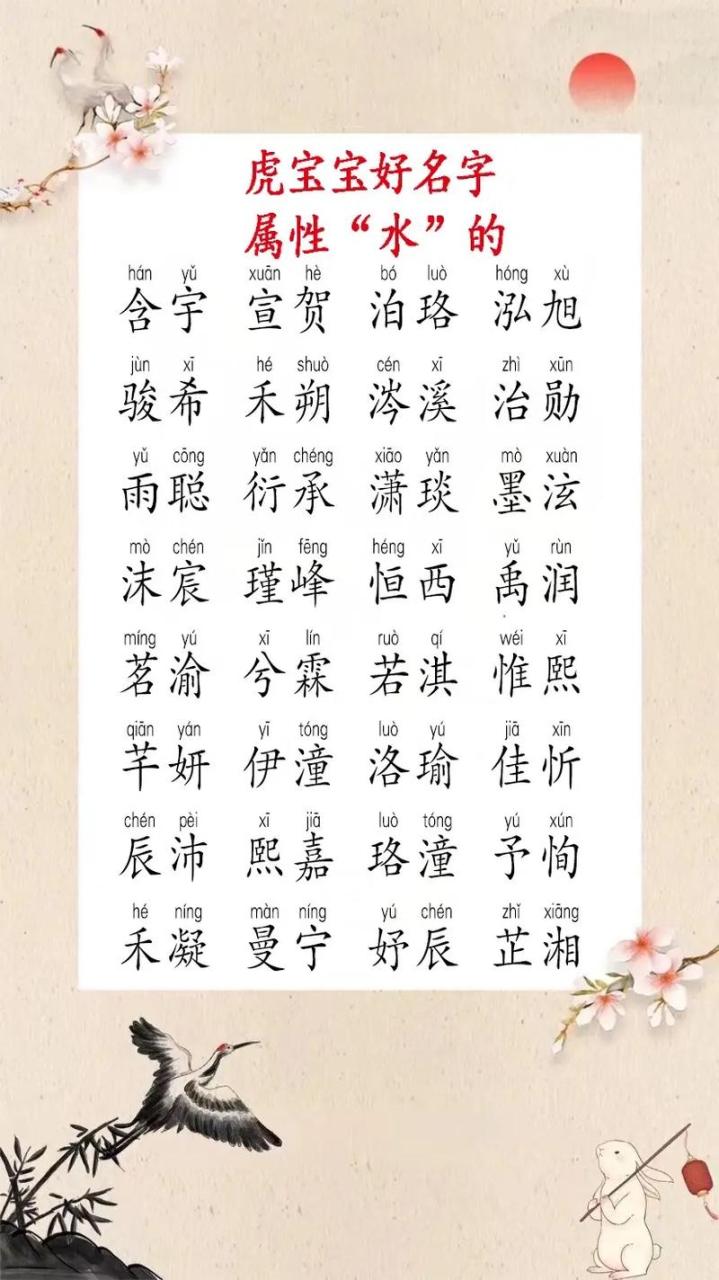 虎宝宝好名字
属性“水”的
hán yǔ xuān hè bó luò hóng xù
含宇 宣贺 泊珞 泓旭
jùn xī hé shuò cén xī zhì xūn
骏希 禾朔 涔溪 治勋
yǔ cōng yǎn chéng xiāo yǎn mò xuàn
雨聪 衍承 潇琰 墨泫
mò chén jǐn fēng héng xī yǔ rùn
沫宸 瑾峰 恒西 禹润
míng yú xī lín ruò qí wéi xī
茗渝 兮霖 若淇 惟熙
qiān yán yī tóng luò yú jiā xīn
芊妍 伊潼 洛瑜 佳忻
chén pèi xī jiā luò tóng yú xún
辰沛 熙嘉 珞潼 予恂
hé níng màn níng yú chén zhǐ xiāng
禾凝 曼宁 妤辰 芷湘